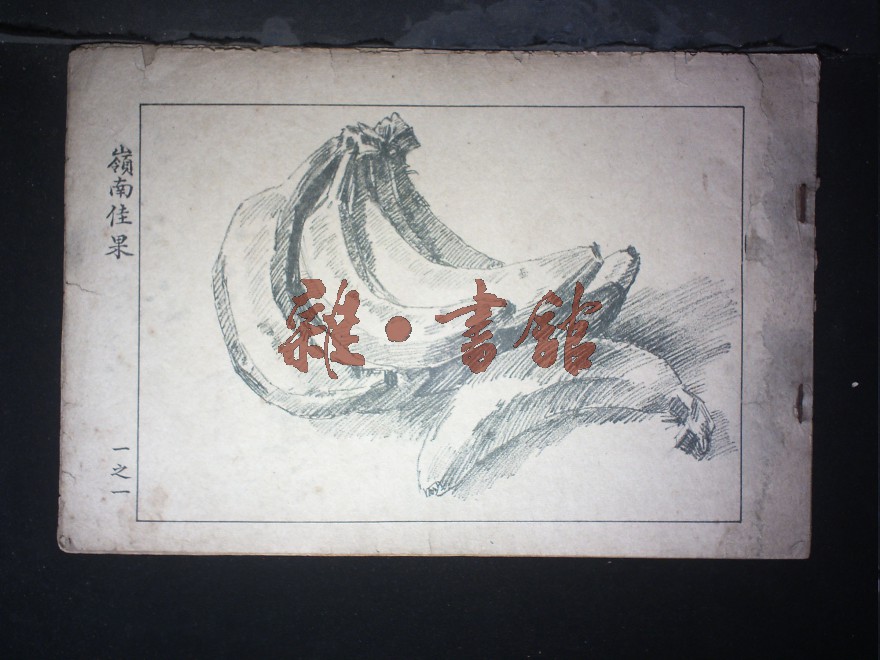 嶺南佳果
一之一
雜·書館